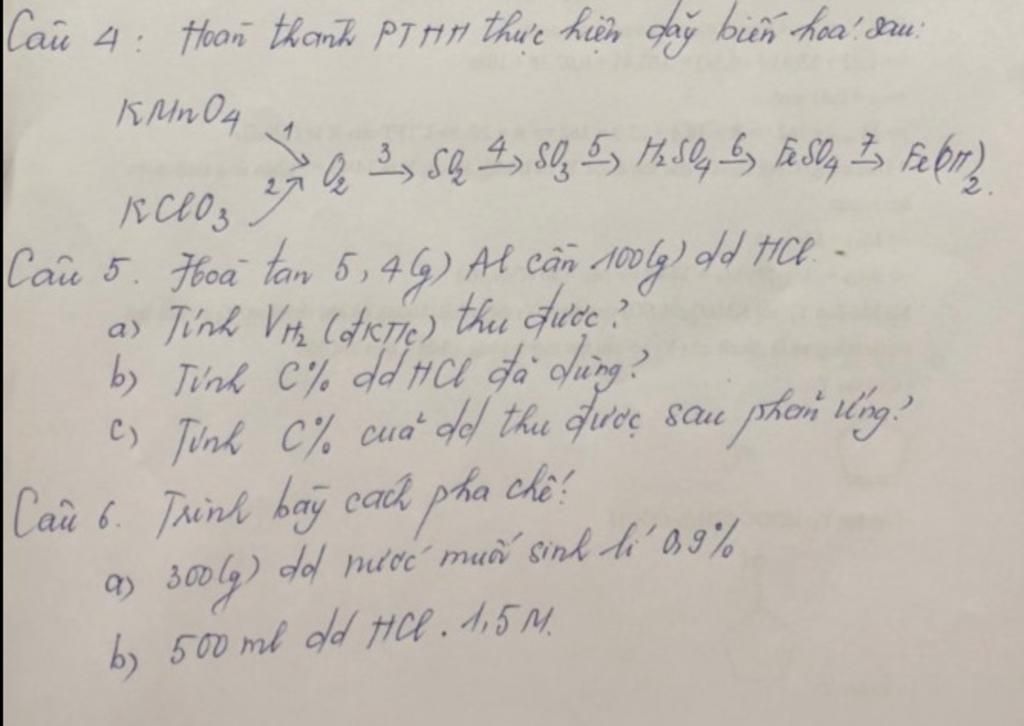 Câu 4: Hoàn thành PTHH thực hiện dãy biến hoá sau:
KMnO4
1
2 O2 3→ SO2 4→ SO3 5→ H2SO4 6→ FeSO4 7→ Fe(OH)2.
KClO3
Câu 5. Hoà tan 5,4(g) Al cần 100(g) dd HCl.
a) Tính VH2 (đKTC) thu được?
b) Tính C% dd HCl đã dùng?
c) Tính C% cuả dd thu được sau phản ứng?
Câu 6. Trình bày cách pha chế!
a) 300(g) dd nước muối sinh lí 0,9%
b) 500 ml dd HCl. 1,5M.